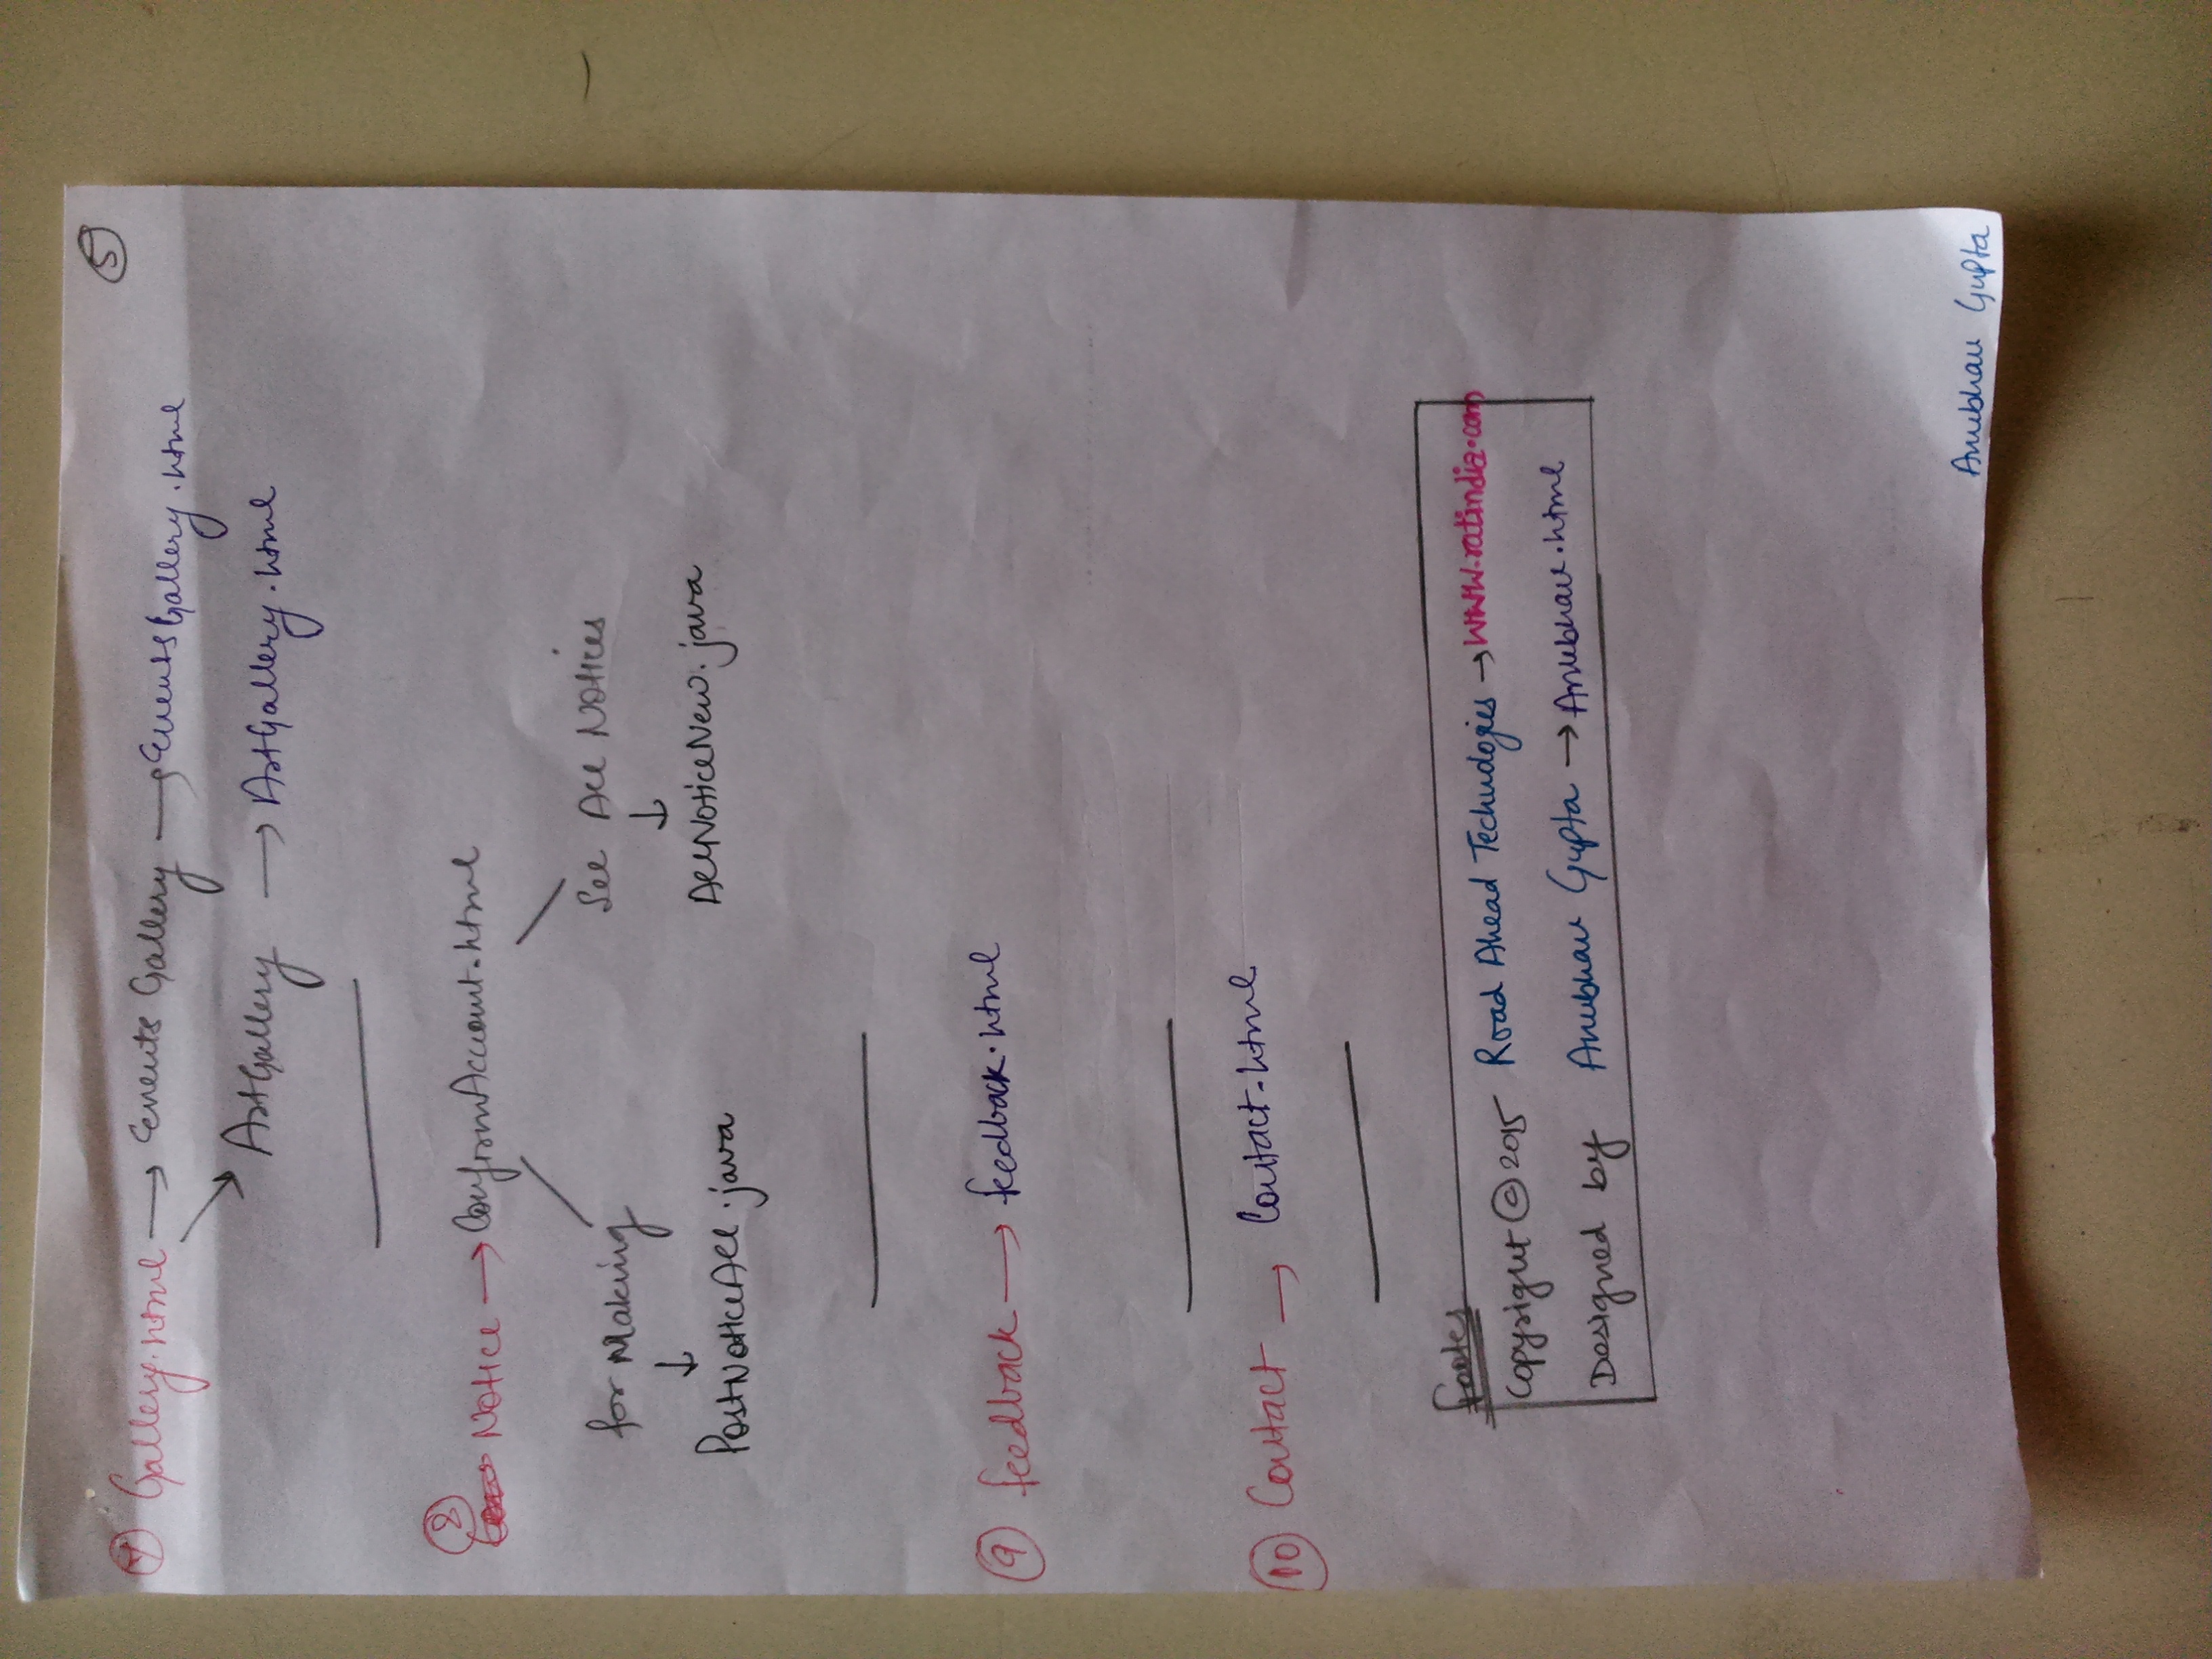 5
7 Gallery.html → Events Gallery → EventsGallery.html
ArtGallery → ArtGallery.html
8
Notice → ConfirmAccount.html
for Making
See All Notices
↓ ↓
PostNoticeAll.java
AllNoticeNew.java
9 feedback → feedback.html
10 Contact → Contact.html
footer
Copyright © 2015 Road Ahead Technologies → www.ratindia.com
Designed by Anubhav Gupta → Anubhav.html
Anubhav Gupta